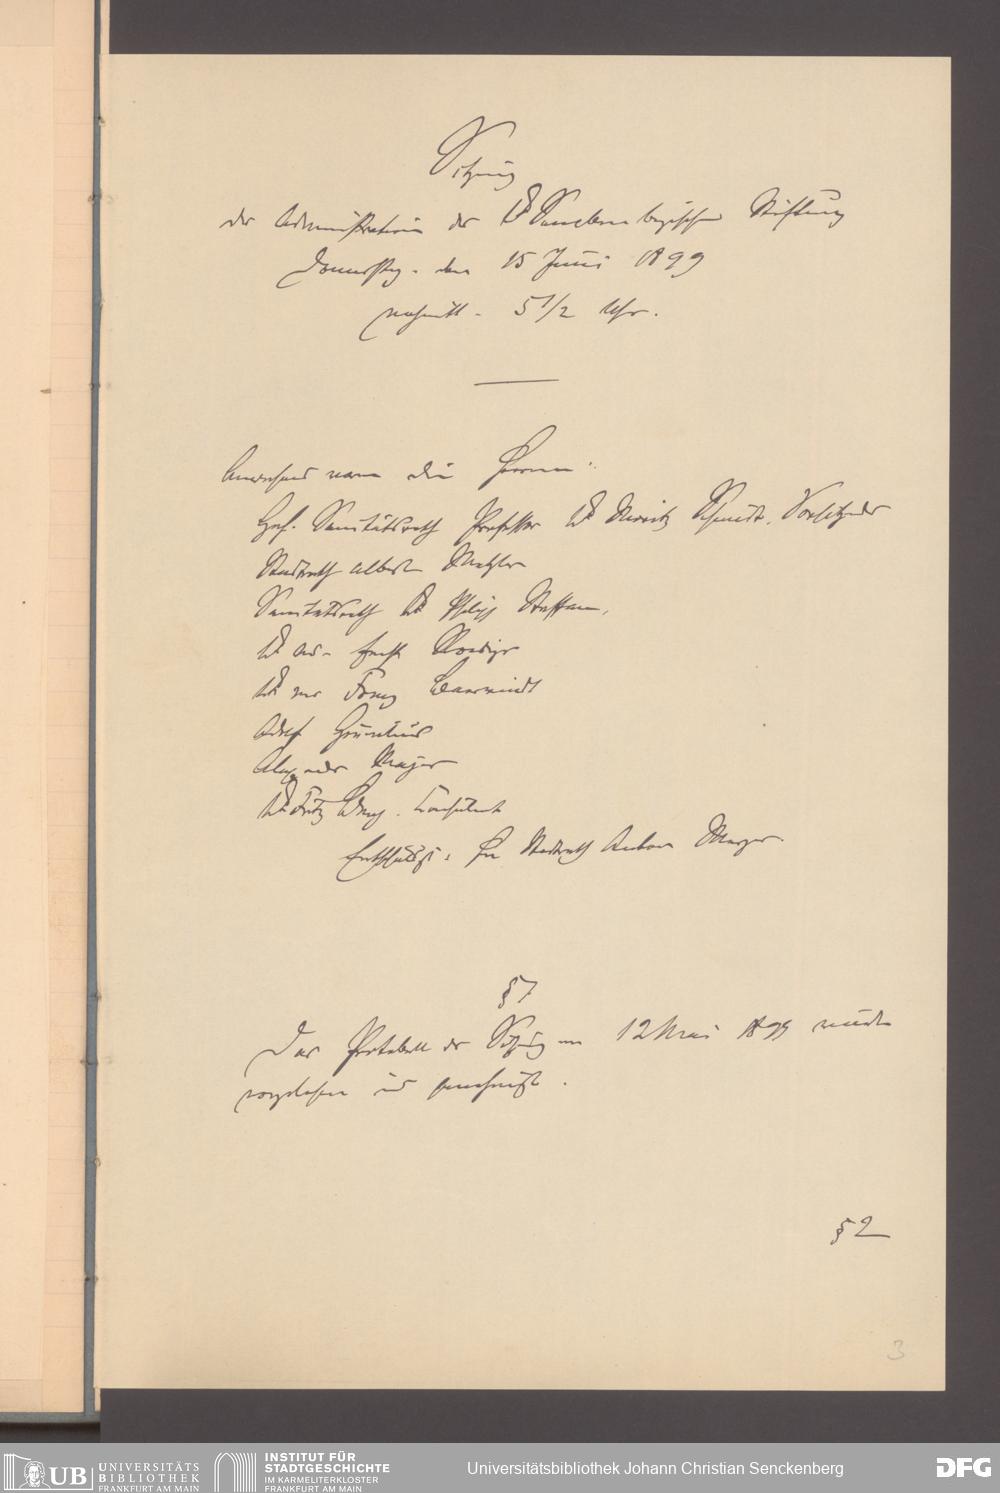 Sitzung
der Administration der Dr Senckenbergischen Stiftung
Donnerstag. den 15 Juni 1899
nachmitt. 5 1/2 Uhr.
Anwesend waren die Herren:
Geh. Sanitätsrath Professor Dr Moritz Schmidt. Vorsitzender
Stadtrath Albert Metzler
Sanitätsrath Dr Philipp Steffan,
Dr Ernst Roediger
Dr Franz Baerwindt
Adolf Grunelius
Alexander Majer
Dr Fritz Berg. Consulent
Entschuldigt: Hr Stadtrath Anton Meyer.
§1
Das Protokoll der Sitzung vom 12 Mai 1899 wurde
vorgelesen und genehmigt.
§2
3
UB UNIVERSITÄTS
BIBLIOTHEK
FRANKFURT AM MAIN
INSTITUT FÜR
STADTGESCHICHTE
IM KARMELITERKLOSTER
FRANKFURT AM MAIN
Universitätsbibliothek Johann Christian Senckenberg
DFG